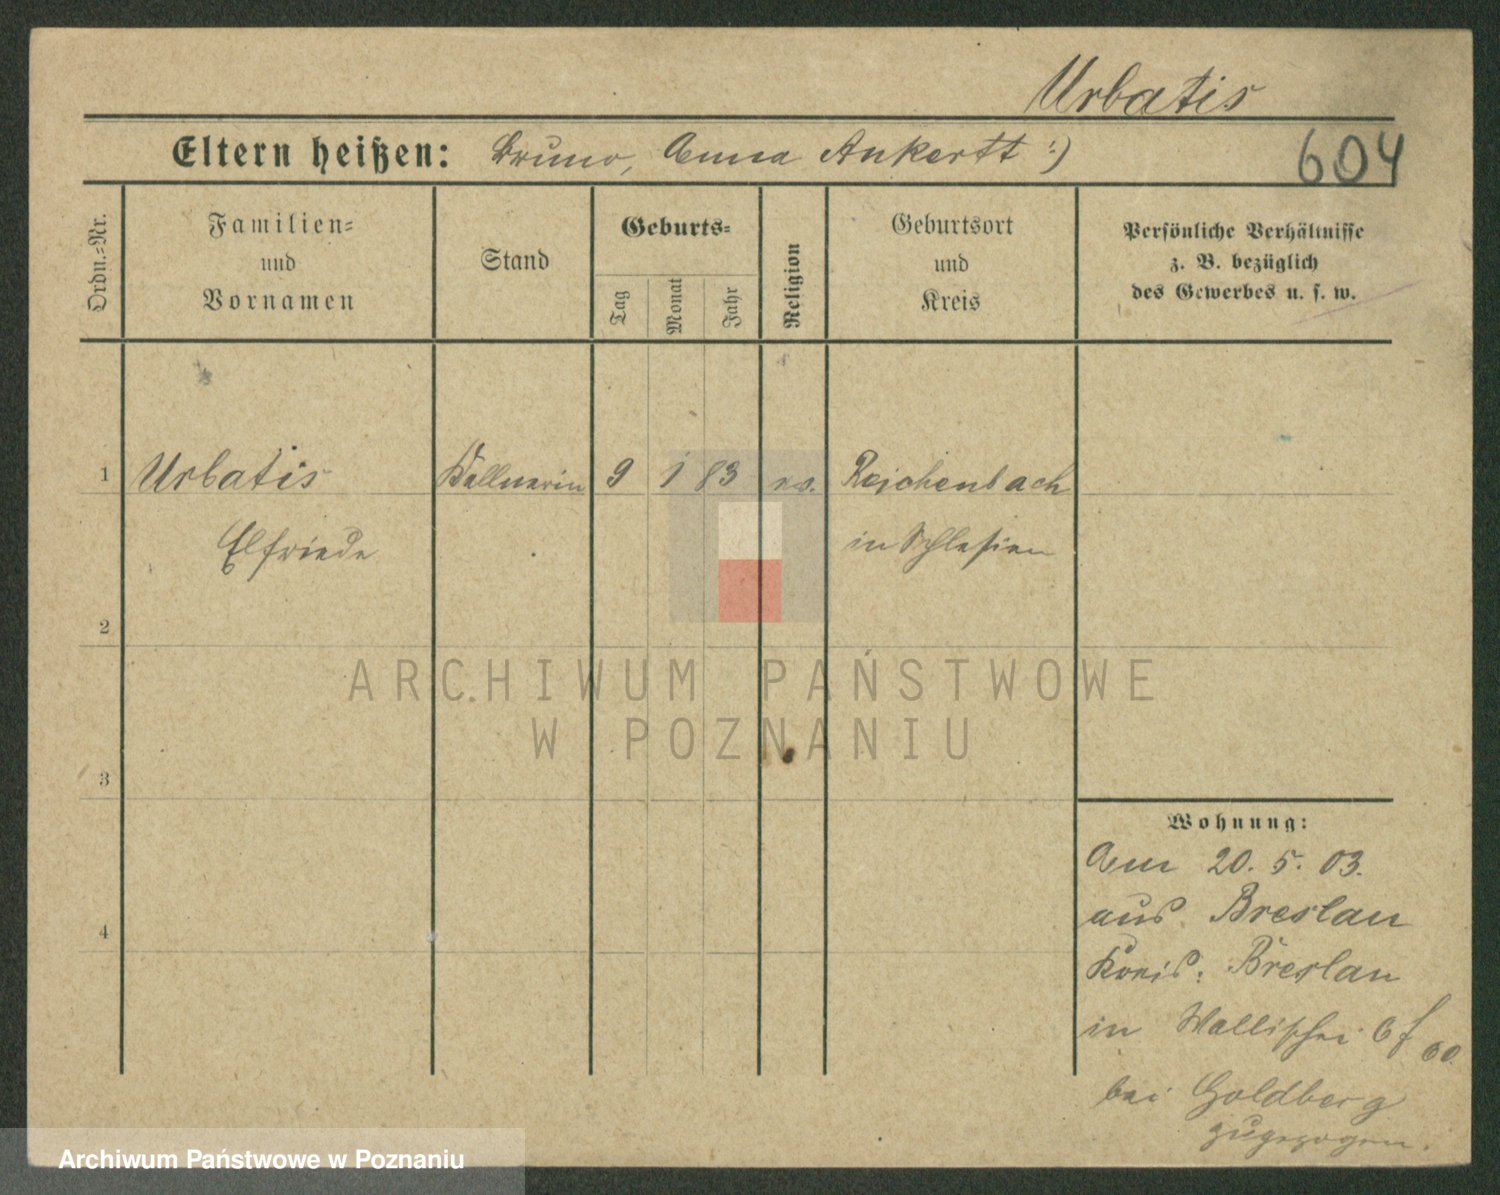 Urbatis
Eltern heißen: Bruno, Anna Ankertt :)
604
Ordn.=Nr.
Familien=
und
Vornamen
Stand
Geburts=
Tag
Monat
Jahr
Religion
Geburtsort
und
Kreis
Persönliche Verhältnisse
z. B. bezüglich
des Gewerbes u. s. w.
1 Urbatis Kellnerin 9 1 83 ev. Reichenbach
Elfriede in Schlesien
2
ARCHIWUM PAŃSTWOWE
W POZNANIU
3
Wohnung:
Am 20. 5. 03.
aus Breslau
4
Kreis: Breslau
in Wallischei 6
bei Goldberg
zugezogen.
Archiwum Państwowe w Poznaniu